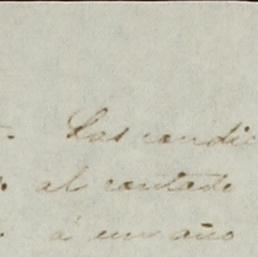 Las condic
al contado
á un año